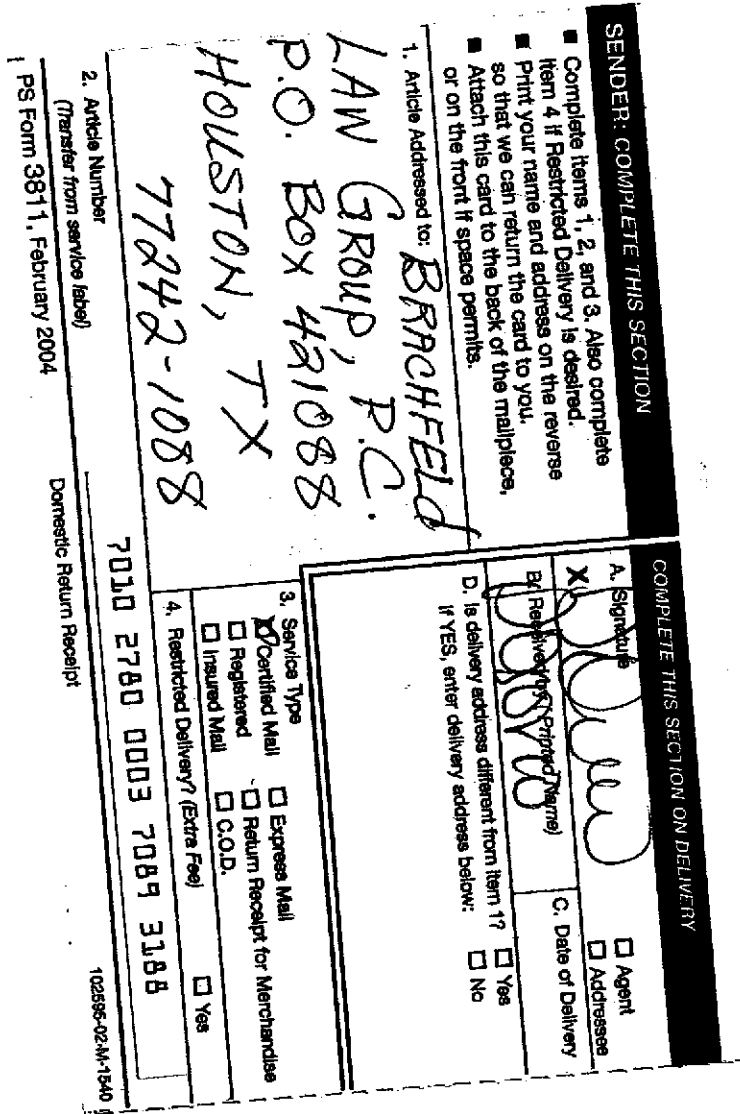 SENDER: COMPLETE THIS SECTION
■ Complete items 1, 2, and 3. Also complete
item 4 if Restricted Delivery is desired.
■ Print your name and address on the reverse
so that we can return the card to you.
■ Attach this card to the back of the mailpiece,
or on the front if space permits.
1. Article Addressed to:
BRACHFELD
LAW GROUP, P.C.
P.O. BOX 421088
HOUSTON, TX
77242-1088
2. Article Number
(Transfer from service label)
PS Form 3811, February 2004
Domestic Return Receipt
COMPLETE THIS SECTION ON DELIVERY
A. Signature
X
☐ Agent
☐ Addressee
B. Received by (Printed Name)
C. Date of Delivery
D. Is delivery address different from item 1? ☐ Yes
If YES, enter delivery address below: ☐ No
3. Service Type
☒ Certified Mail ☐ Express Mail
☐ Registered ☐ Return Receipt for Merchandise
☐ Insured Mail ☐ C.O.D.
4. Restricted Delivery? (Extra Fee) ☐ Yes
7010 2780 0003 7089 3188
102595-02-M-1540